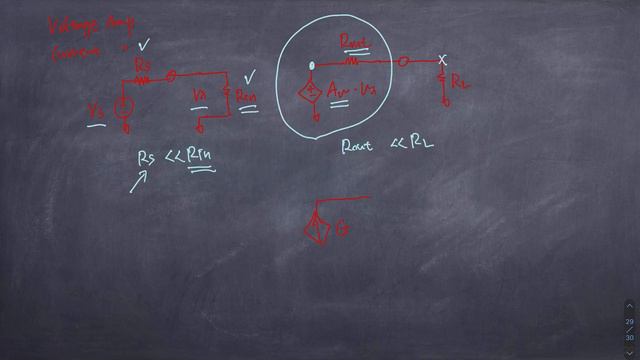 Voltage Amp
Current " ✓
Rs
Vs
Vi
Rin
✓
Rs << Rin
Rout
Av · Vi
x
RL
Rout << RL
G
29
/
30